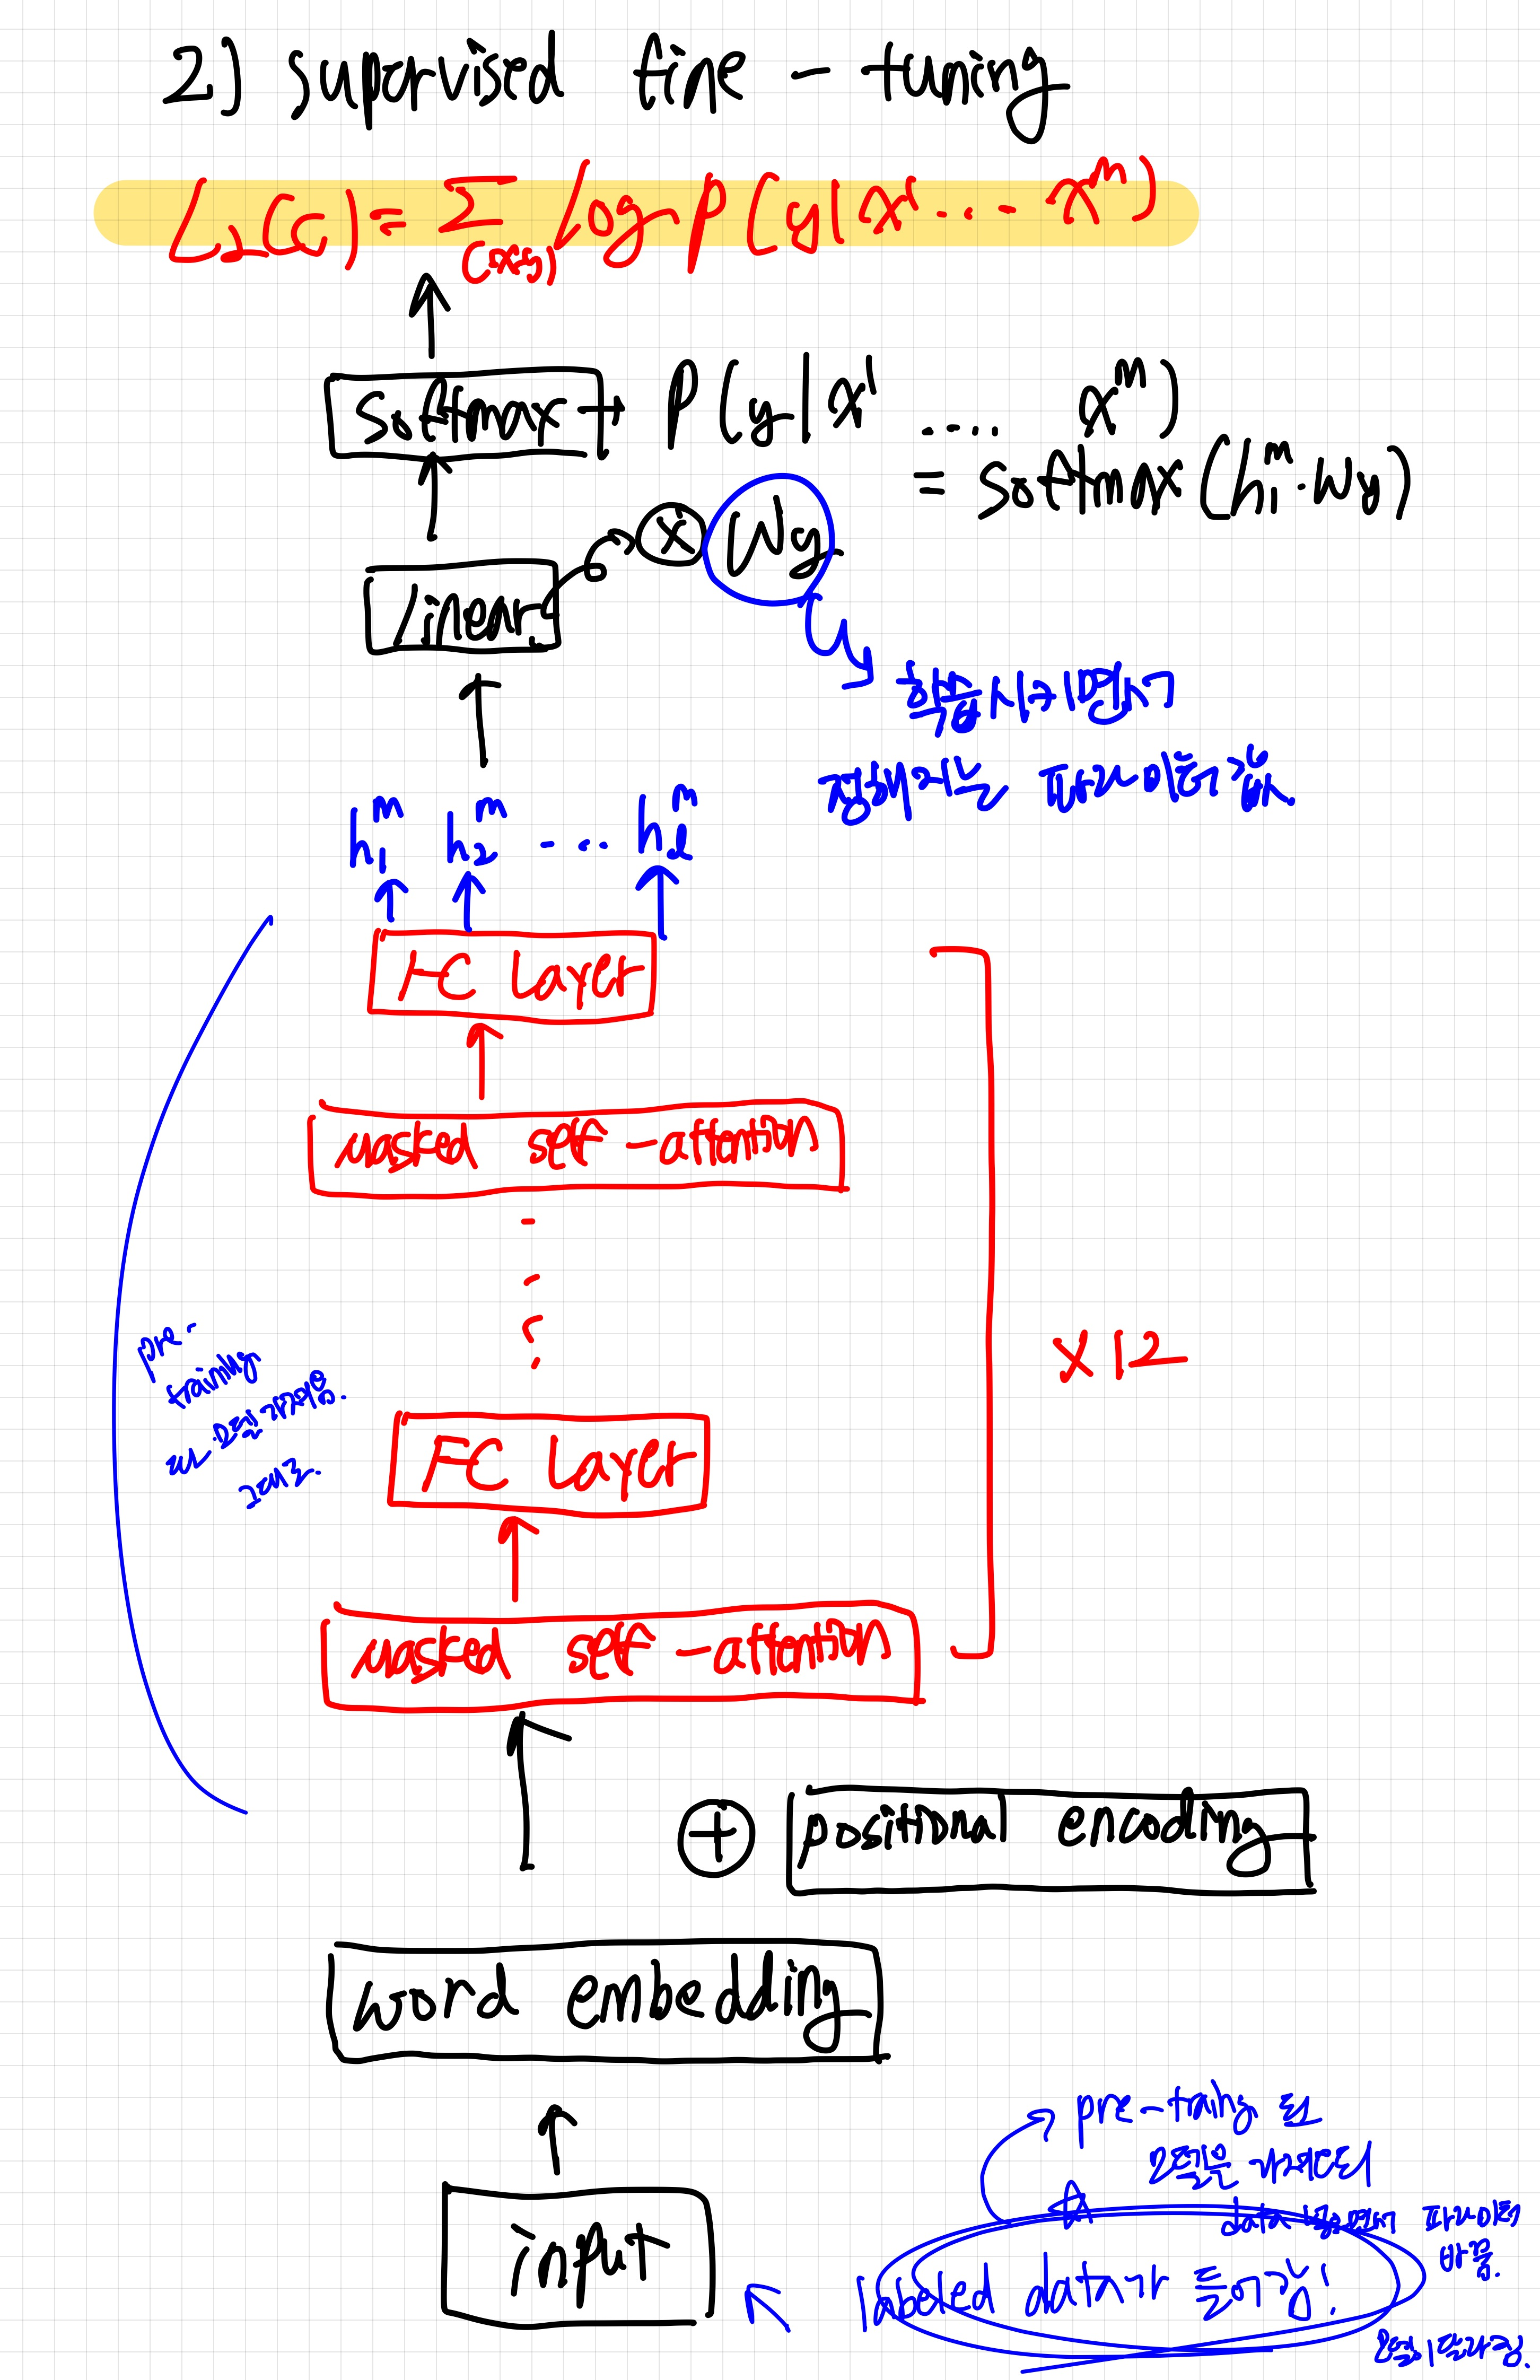 2) supervised fine - tuning
L₂(C) = Σ(x,y) log P(y|x¹ .... xᵐ)
softmax → P(y|x¹ ..... xᵐ)
= softmax(hₗᵐ·Wy)
linear ⊗ Wy
학습시키면서
정해지는 파라미터값.
h₁ᵐ h₂ᵐ ..... hₗᵐ
FC Layer
masked self-attention
×12
pre-
training
모델 가져옴.
그대로.
FC Layer
masked self-attention
⊕ positional encoding
word embedding
pre-traing 된
모델은 가져오되
data 넣으면서 파라미터
바뀜.
input
labeled data가 들어감!
모델이 달라짐.